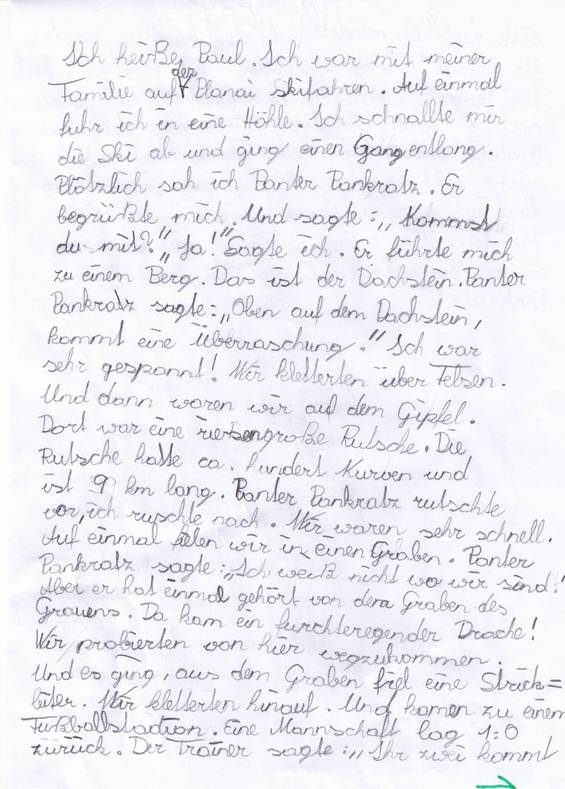 Ich heiße Paul. Ich war mit meiner
Familie auf der Planai skifahren. Auf einmal
fuhr ich in eine Höhle. Ich schnallte mir
die Ski ab und ging einen Gang entlang.
Plötzlich sah ich Panter Pankratz. Er
begrüßte mich. Und sagte: „Kommst
du mit?" „Ja!" Sagte ich. Er führte mich
zu einem Berg. Das ist der Dachstein. Panter
Pankratz sagte: „Oben auf dem Dachstein,
kommt eine Überraschung." Ich war
sehr gespannt! Wir kletterten über Felsen.
Und dann waren wir auf dem Gipfel.
Dort war eine riesengroße Rutsche. Die
Rutsche hatte ca. hundert Kurven und
ist 9 km lang. Panter Pankratz rutschte
vor, ich ruschte nach. Wir waren sehr schnell.
Auf einmal fielen wir in einen Graben. Panter
Pankratz sagte: „Ich weiß nicht wo wir sind!
Aber er hat einmal gehört von dem Graben des
Grauens. Da kam ein furchteregender Drache!
Wir probierten von hier wegzukommen.
Und es ging, aus dem Graben fiel eine Strick=
leiter. Wir kletterten hinauf. Und kamen zu einem
Fußballstadion. Eine Mannschaft lag 1:0
zürück. Der Trainer sagte: „Ihr zwei kommt
1